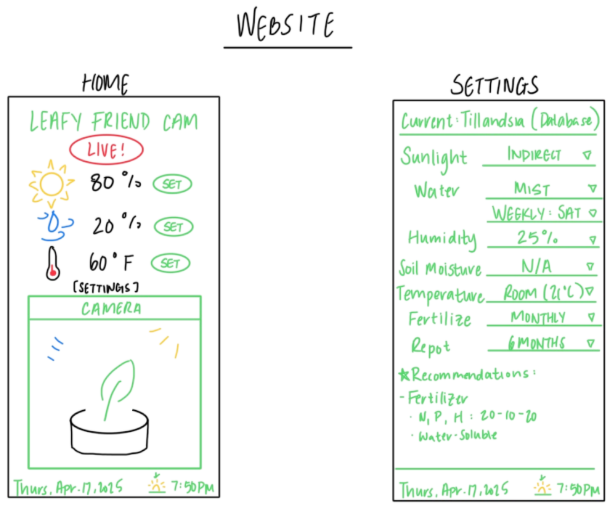 WEBSITE
HOME
LEAFY FRIEND CAM
LIVE!
80 °/o SET
20 °/o SET
60°F SET
[SETTINGS]
CAMERA
Thurs, Apr. 17, 2025 7:50PM
SETTINGS
Current: Tillandsia (Database)
Sunlight INDIRECT
Water MIST
WEEKLY: SAT
Humidity 25%
Soil Moisture N/A
Temperature ROOM (21°C)
Fertilize MONTHLY
Repot 6 MONTHS
★Recommendations:
- Fertilizer
· N, P, H : 20-10-20
· Water-Soluble
Thurs, Apr. 17, 2025 7:50PM